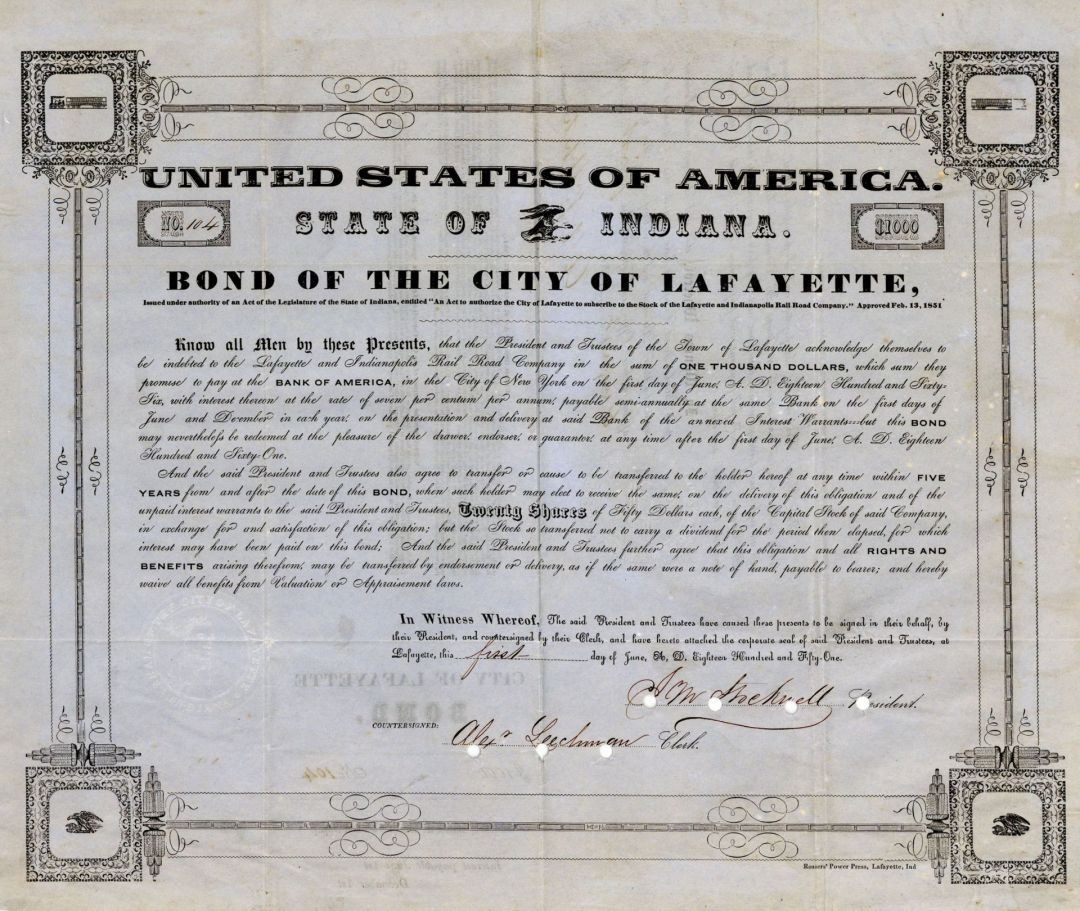 UNITED STATES OF AMERICA.
NO. 104
STATE OF INDIANA.
$1000
BOND OF THE CITY OF LAFAYETTE,
Issued under authority of an Act of the Legislature of the State of Indiana, entitled "An Act to authorize the City of Lafayette to subscribe to the Stock of the Lafayette and Indianapolis Rail Road Company." Approved Feb. 13, 1851
Know all Men by these Presents, that the President and Trustees of the Town of Lafayette acknowledge themselves to
be indebted to the Lafayette and Indianapolis Rail Road Company in the sum of ONE THOUSAND DOLLARS, which sum they
promise to pay at the BANK OF AMERICA, in the City of New York on the first day of June, A. D. Eighteen Hundred and Sixty-
Six, with interest thereon at the rate of seven per centum per annum, payable semi-annually at the same Bank on the first days of
June and December in each year, on the presentation and delivery at said Bank of the annexed Interest Warrants--but this BOND
may nevertheless be redeemed at the pleasure of the drawer, endorser, or guarantor, at any time after the first day of June, A. D. Eighteen
Hundred and Sixty-One.
And the said President and Trustees also agree to transfer or cause to be transferred to the holder hereof at any time within FIVE
YEARS from and after the date of this BOND, when such holder may elect to receive the same, on the delivery of this obligation and of the
unpaid interest warrants to the said President and Trustees, Twenty Shares of Fifty Dollars each, of the Capital Stock of said Company,
in exchange for and satisfaction of this obligation; but the Stock so transferred not to carry a dividend for the period then elapsed, for which
interest may have been paid on this bond; And the said President and Trustees further agree that this obligation and all RIGHTS AND
BENEFITS arising therefrom, may be transferred by endorsement or delivery, as if the same were a note of hand, payable to bearer; and hereby
waive all benefits from Valuation or Appraisement laws.
In Witness Whereof, The said President and Trustees have caused these presents to be signed in their behalf, by
their President, and countersigned by their Clerk, and have hereto attached the corporate seal of said President and Trustees, at
Lafayette, this first day of June, A. D. Eighteen Hundred and Fifty-One.
CITY OF LAFAYETTE
BOND,
Stockwell President.
COUNTERSIGNED:
Alexr Leechman Clerk.
No 104
Rossers' Power Press, Lafayette, Ind